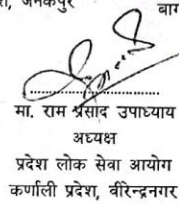 जनकपुर
मा. राम प्रसाद उपाध्याय
अध्यक्ष
प्रदेश लोक सेवा आयोग
कर्णाली प्रदेश, वीरेन्द्रनगर